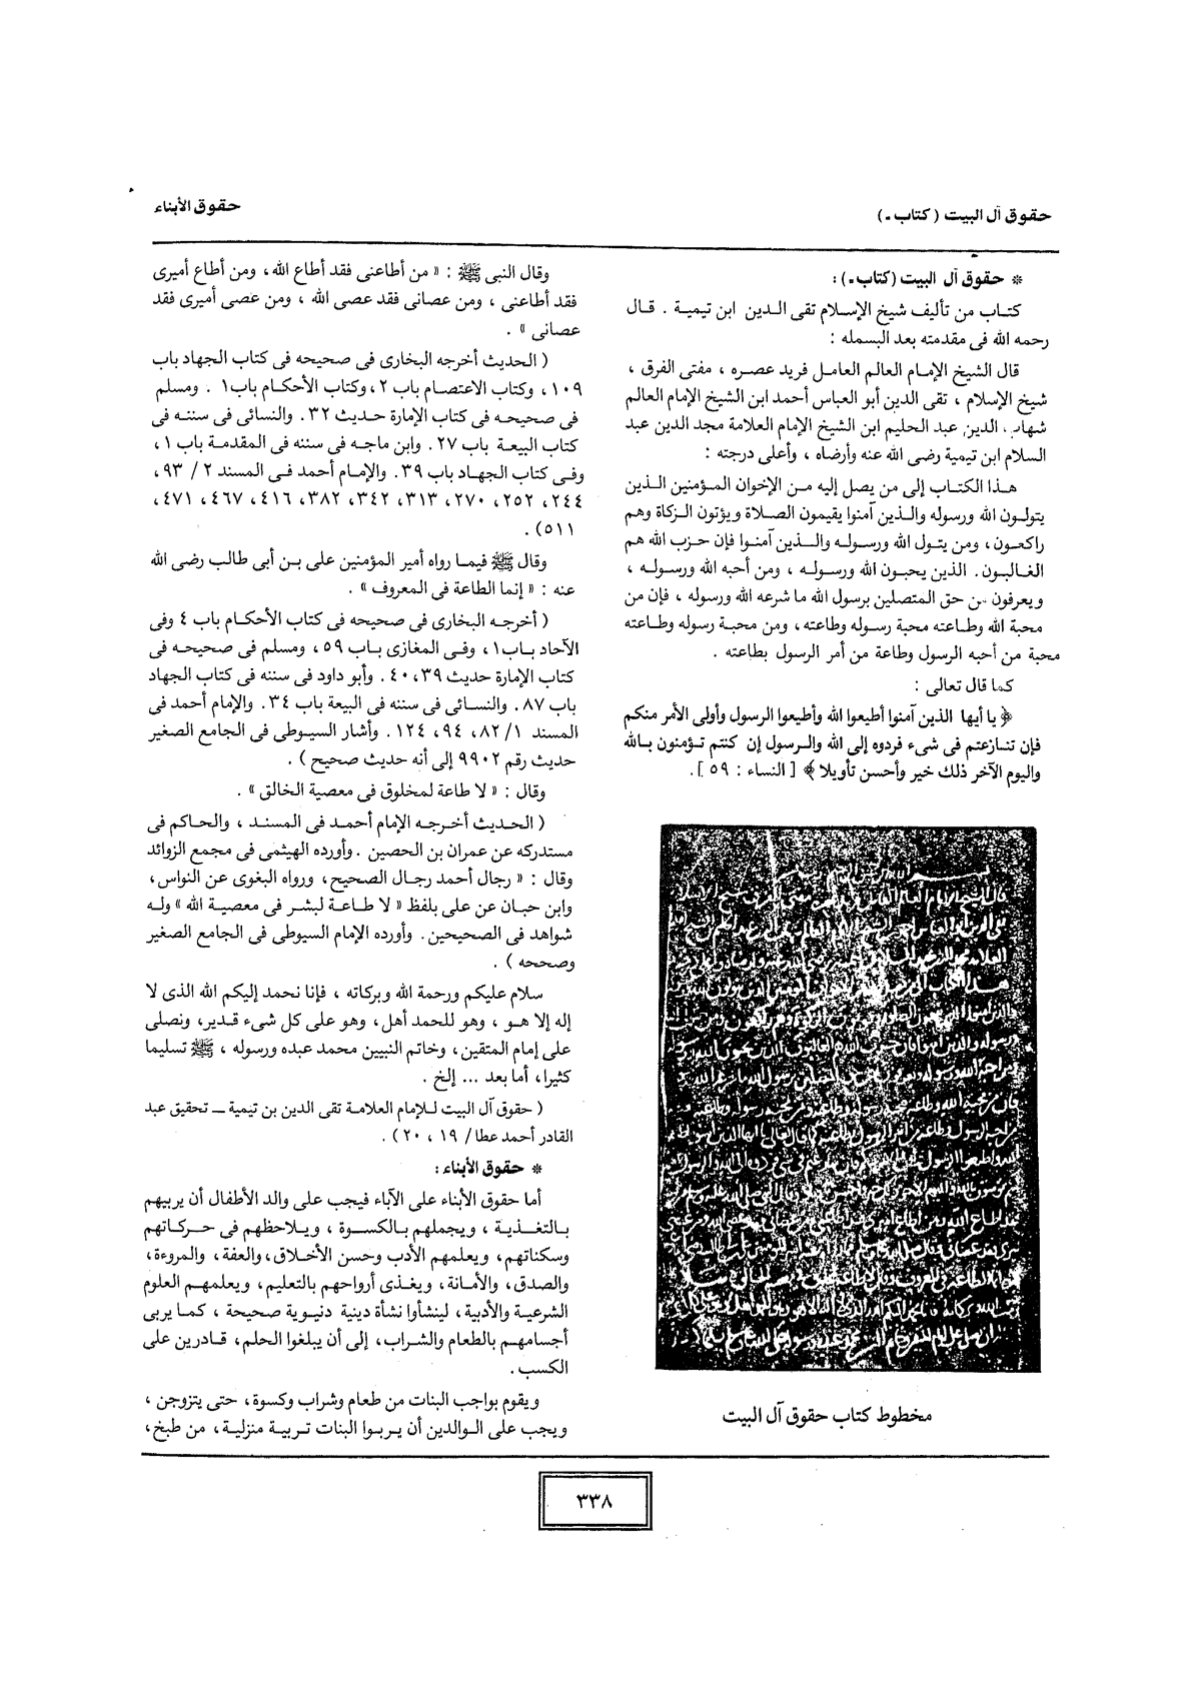 حقوق آل البيت ( كتاب ـ )
حقوق الأبناء
* حقوق آل البيت (كتاب ـ) :
كتاب من تأليف شيخ الإسلام تقى الدين ابن تيمية . قال
رحمه الله فى مقدمته بعد البسمله :
قال الشيخ الإمام العالم العامل فريد عصره ، مفتى الفرق ،
شيخ الإسلام ، تقى الدين أبو العباس أحمد ابن الشيخ الإمام العالم
شهاب الدين عبد الحليم ابن الشيخ الإمام العلامة مجد الدين عبد
السلام ابن تيمية رضى الله عنه وأرضاه ، وأعلى درجته :
هذا الكتاب إلى من يصل إليه من الإخوان المؤمنين الذين
يتولون الله ورسوله والذين آمنوا يقيمون الصلاة ويؤتون الزكاة وهم
راكعون ، ومن يتول الله ورسوله والذين آمنوا فإن حزب الله هم
الغالبون . الذين يحبون الله ورسوله ، ومن أحبه الله ورسوله ،
ويعرفون من حق المتصلين برسول الله ما شرعه الله ورسوله ، فإن من
محبة الله وطاعته محبة رسوله وطاعته ، ومن محبة رسوله وطاعته
محبة من أحبه الرسول وطاعة من أمر الرسول بطاعته .
كما قال تعالى :
﴿ يا أيها الذين آمنوا أطيعوا الله وأطيعوا الرسول وأولى الأمر منكم
فإن تنازعتم فى شىء فردوه إلى الله والرسول إن كنتم تؤمنون بالله
واليوم الآخر ذلك خير وأحسن تأويلا ﴾ [ النساء : ٥٩ ] .
مخطوط كتاب حقوق آل البيت
وقال النبى ﷺ : « من أطاعنى فقد أطاع الله ، ومن أطاع أميرى
فقد أطاعنى ، ومن عصانى فقد عصى الله ، ومن عصى أميرى فقد
عصانى » .
( الحديث أخرجه البخارى فى صحيحه فى كتاب الجهاد باب
١٠٩ ، وكتاب الاعتصام باب ٢ ، وكتاب الأحكام باب ١ . ومسلم
فى صحيحه فى كتاب الإمارة حديث ٣٢ . والنسائى فى سننه فى
كتاب البيعة باب ٢٧ . وابن ماجه فى سننه فى المقدمة باب ١ ،
وفى كتاب الجهاد باب ٣٩ . والإمام أحمد فى المسند ٢ / ٩٣ ،
٢٤٤ ، ٢٥٢ ، ٢٧٠ ، ٣١٣ ، ٣٤٢ ، ٣٨٢ ، ٤١٦ ، ٤٦٧ ، ٤٧١ ،
٥١١ ) .
وقال ﷺ فيما رواه أمير المؤمنين على بن أبى طالب رضى الله
عنه : « إنما الطاعة فى المعروف » .
( أخرجه البخارى فى صحيحه فى كتاب الأحكام باب ٤ وفى
الآحاد باب ١ ، وفى المغازى باب ٥٩ ، ومسلم فى صحيحه فى
كتاب الإمارة حديث ٣٩ ، ٤٠ . وأبو داود فى سننه فى كتاب الجهاد
باب ٨٧ . والنسائى فى سننه فى البيعة باب ٣٤ . والإمام أحمد فى
المسند ١ / ٨٢ ، ٩٤ ، ١٢٤ . وأشار السيوطى فى الجامع الصغير
حديث رقم ٩٩٠٢ إلى أنه حديث صحيح ) .
وقال : « لا طاعة لمخلوق فى معصية الخالق » .
( الحديث أخرجه الإمام أحمد فى المسند ، والحاكم فى
مستدركه عن عمران بن الحصين . وأورده الهيثمى فى مجمع الزوائد
وقال : « رجال أحمد رجال الصحيح ، ورواه البغوى عن النواس ،
وابن حبان عن على بلفظ « لا طاعة لبشر فى معصية الله » وله
شواهد فى الصحيحين . وأورده الإمام السيوطى فى الجامع الصغير
وصححه ) .
سلام عليكم ورحمة الله وبركاته ، فإنا نحمد إليكم الله الذى لا
إله إلا هو ، وهو للحمد أهل ، وهو على كل شىء قدير ، ونصلى
على إمام المتقين ، وخاتم النبيين محمد عبده ورسوله ، ﷺ تسليما
كثيرا ، أما بعد ... إلخ .
( حقوق آل البيت للإمام العلامة تقى الدين بن تيمية ــ تحقيق عبد
القادر أحمد عطا / ١٩ ، ٢٠ ) .
* حقوق الأبناء :
أما حقوق الأبناء على الآباء فيجب على والد الأطفال أن يربيهم
بالتغذية ، ويجملهم بالكسوة ، ويلاحظهم فى حركاتهم
وسكناتهم ، ويعلمهم الأدب وحسن الأخلاق ، والعفة ، والمروءة ،
والصدق ، والأمانة ، ويغذى أرواحهم بالتعليم ، ويعلمهم العلوم
الشرعية والأدبية ، لينشأوا نشأة دينية دنيوية صحيحة ، كما يربى
أجسامهم بالطعام والشراب ، إلى أن يبلغوا الحلم ، قادرين على
الكسب .
ويقوم بواجب البنات من طعام وشراب وكسوة ، حتى يتزوجن ،
ويجب على الوالدين أن يربوا البنات تربية منزلية ، من طبخ ،
٣٣٨